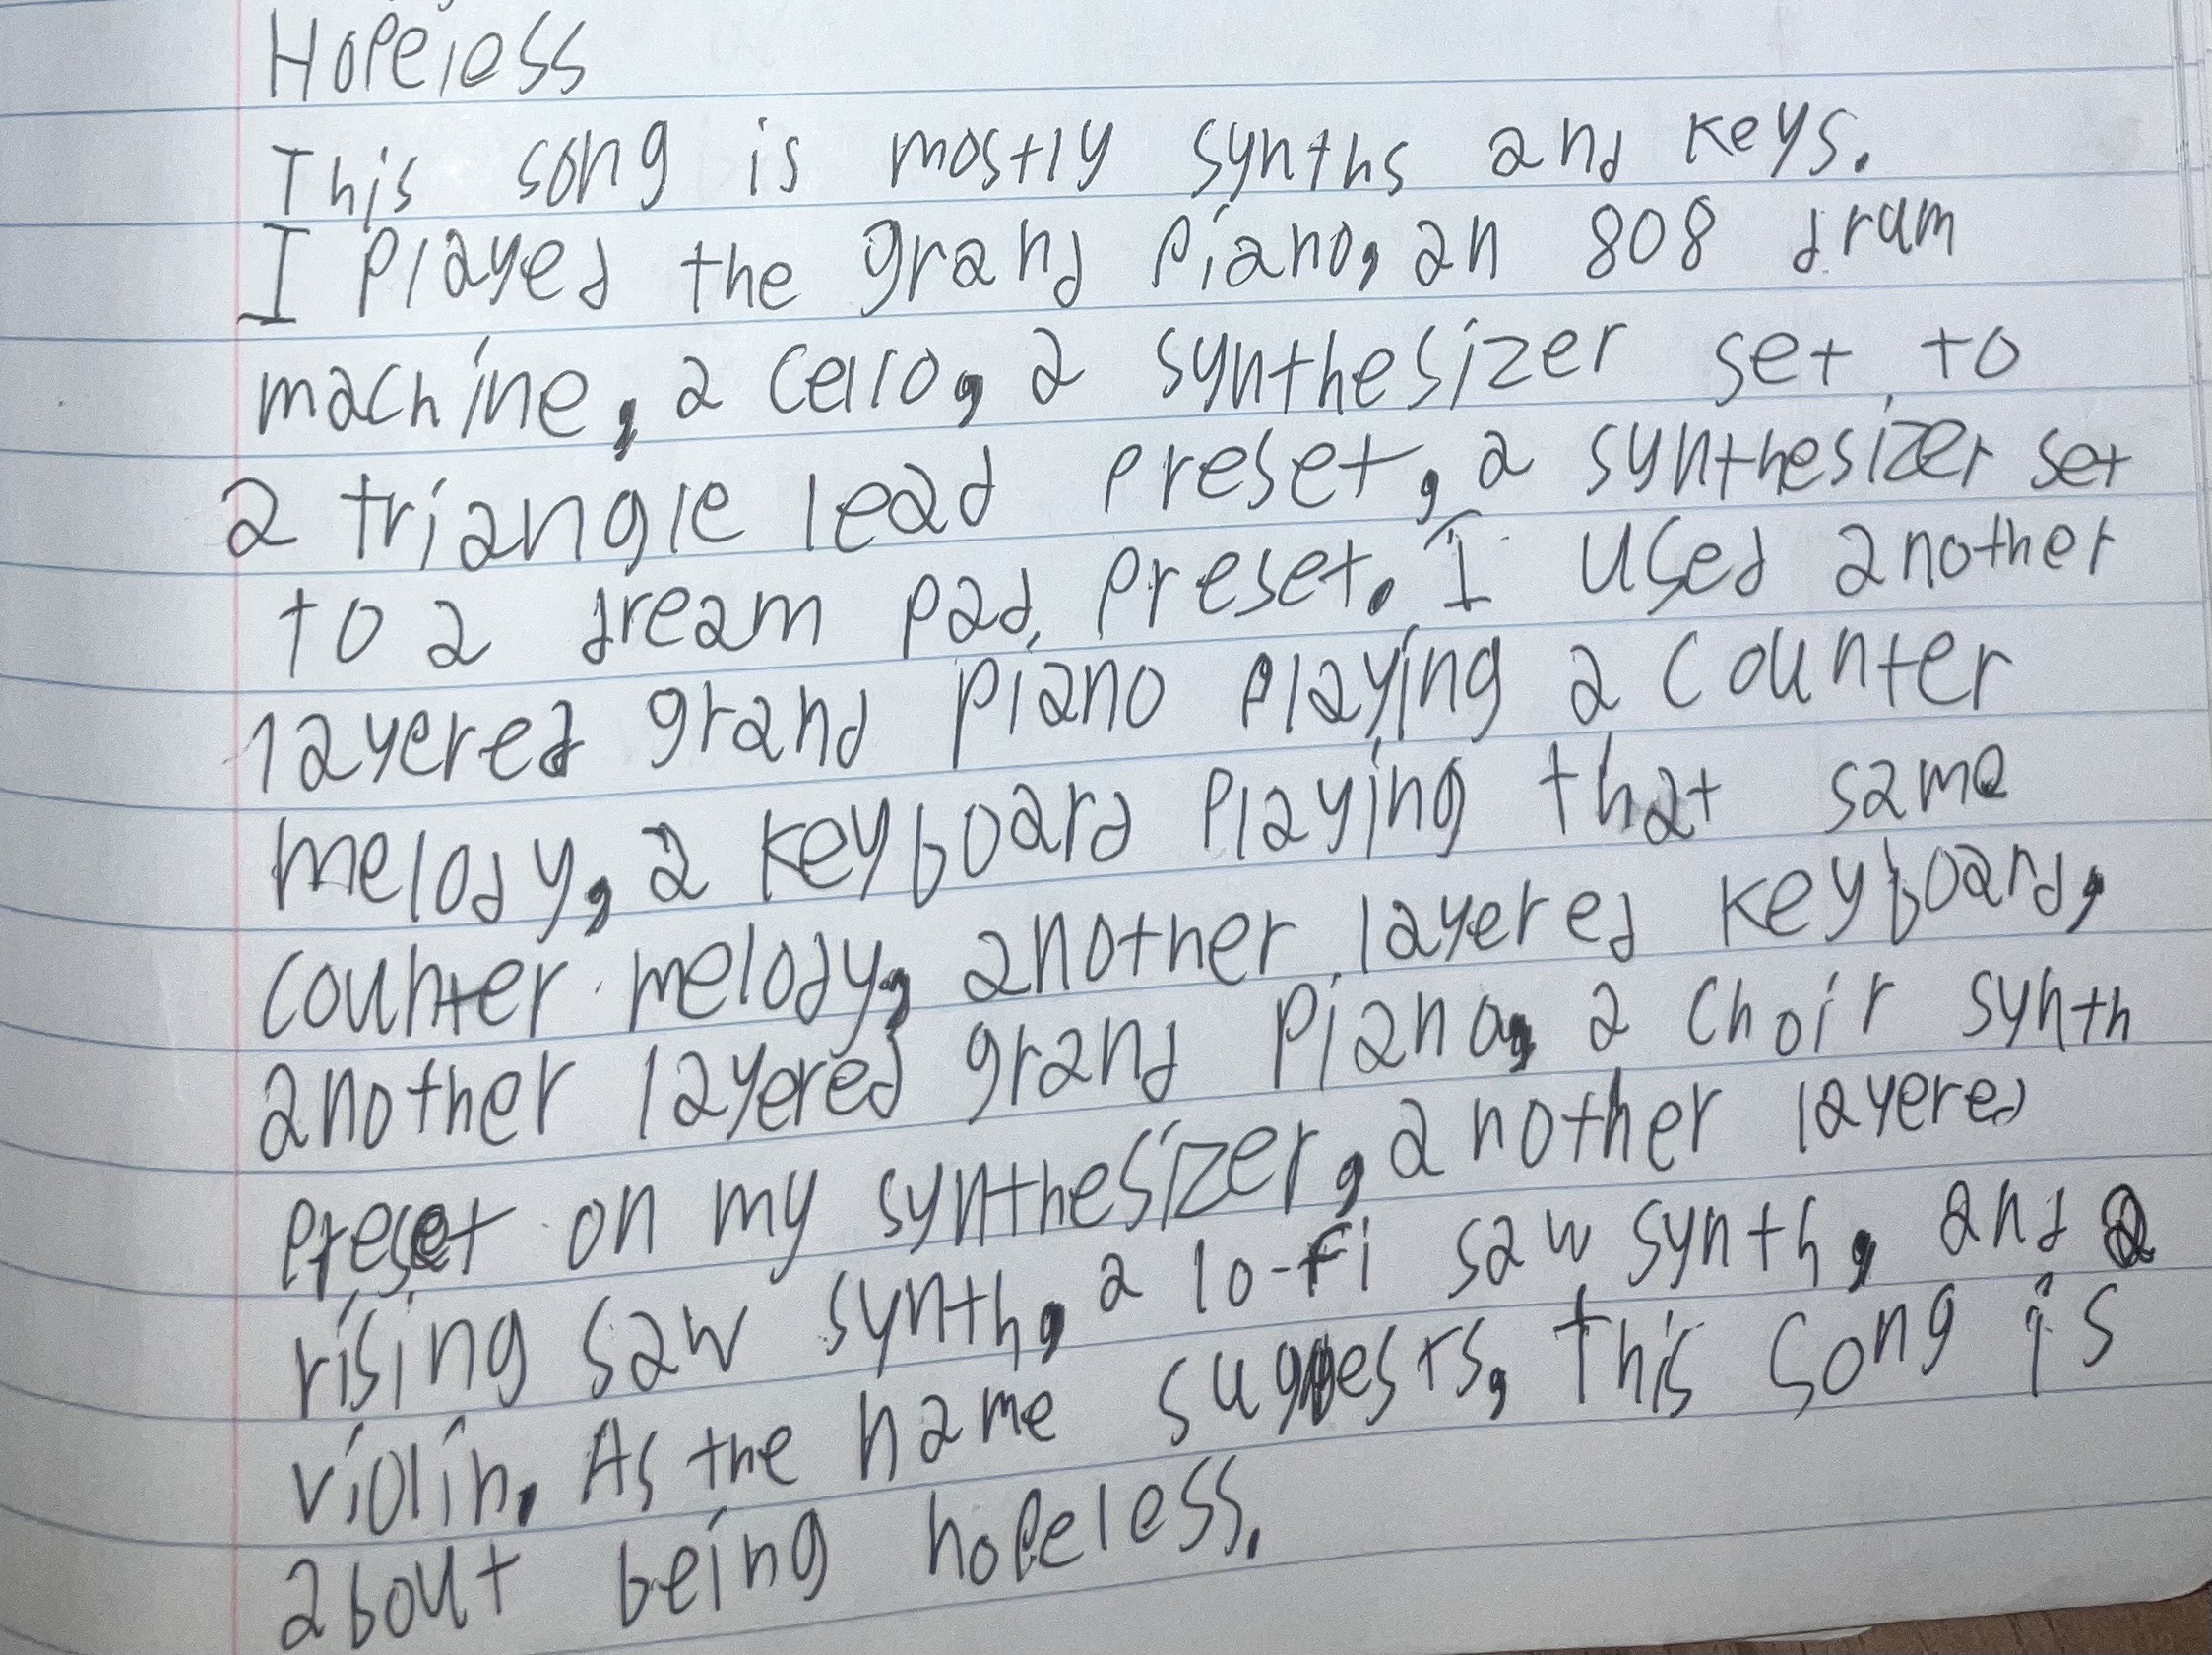 Hopeless
This song is mostly synths and keys.
I played the grand piano, an 808 drum
machine, a cello, a synthesizer set to
a triangle lead preset, a synthesizer set
to a dream pad preset. I used another
layered grand piano playing a counter
melody, a keyboard playing that same
counter melody, another layered keyboard,
another layered grand piano, a choir synth
preset on my synthesizer, another layered
rising saw synth, a lo-fi saw synth, and a
violin. As the name suggests, this song is
about being hopeless.